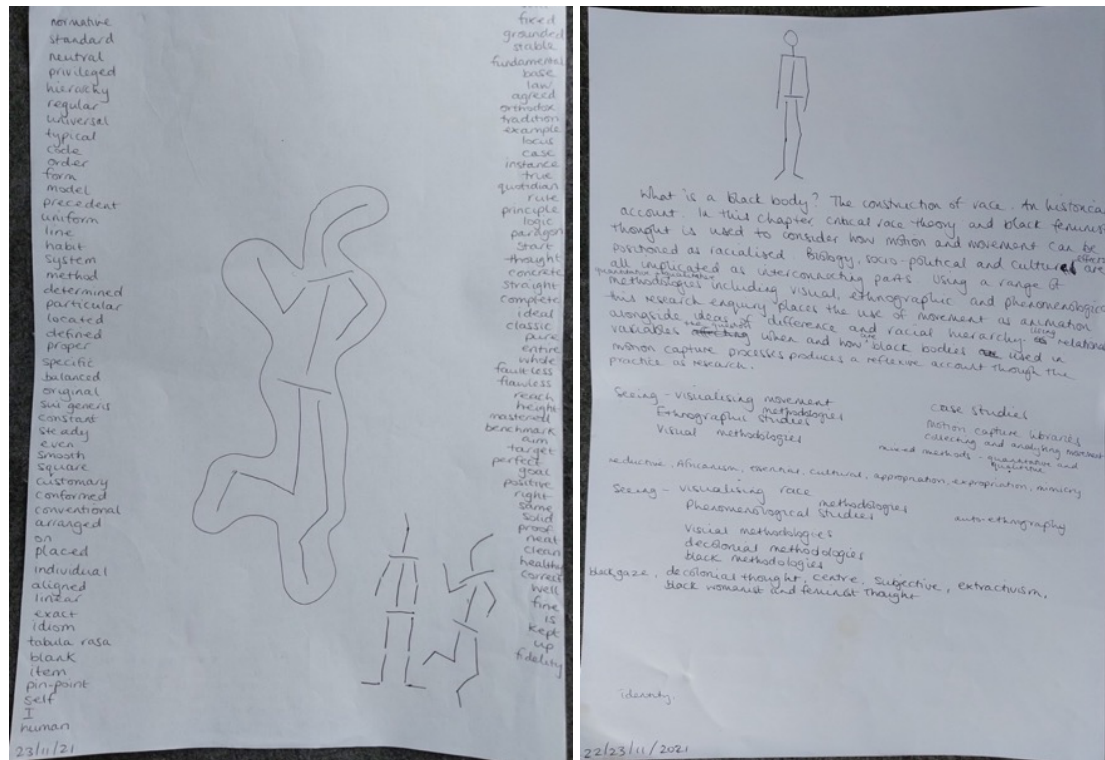 normative
standard
neutral
privileged
hierarchy
regular
universal
typical
code
order
form
model
precedent
uniform
line
habit
system
method
determined
particular
located
defined
proper
specific
balanced
original
sui generis
constant
steady
even
smooth
square
customary
conformed
conventional
arranged
on
placed
individual
aligned
linear
exact
idiom
tabula rasa
blank
item
pin-point
self
I
human
23/11/21
fixed
grounded
stable
fundamental
base
law
agreed
orthodox
tradition
example
locus
case
instance
true
quotidian
rule
principle
logic
paragon
start
thought
concrete
straight
complete
ideal
classic
pure
entire
whole
faultless
flawless
reach
height
mastered
benchmark
aim
target
perfect
goal
positive
right
same
solid
proof
neat
clean
healthy
correct
well
fine
is
kept
up
fidelity
What is a black body? The construction of race. An historical
account. In this chapter critical race theory and black feminist
thought is used to consider how motion and movement can be
positioned as racialised Biology, socio-political and cultural effects are
all implicated as interconnecting parts Using a range of
quantative qualitative
methodologies including visual, ethnographic and phenomenological
this research enquiry places the use of movement as animation
alongside ideas of difference and racial hierarchy. relational
variables when and how black bodies are used in
motion capture processes produces a reflexive account though the
practice as research.
Seeing - visualising movement
methodologies
Ethnographic studies
Visual methodologies
case studies
motion capture libraries
collecting and analysing movement
mixed methods - quantative and
qualitative
reductive, Africanism, essential, cultural, appropriation, expropriation, mimicry
Seeing - visualising race
methodologies
Phenomenological studies
auto-ethnography
visual methodologies
decolonial methodologies
black methodologies
black gaze, decolonial thought, centre, subjective, extractivism,
black womanist and feminist thought
identity.
22/23/11/2021